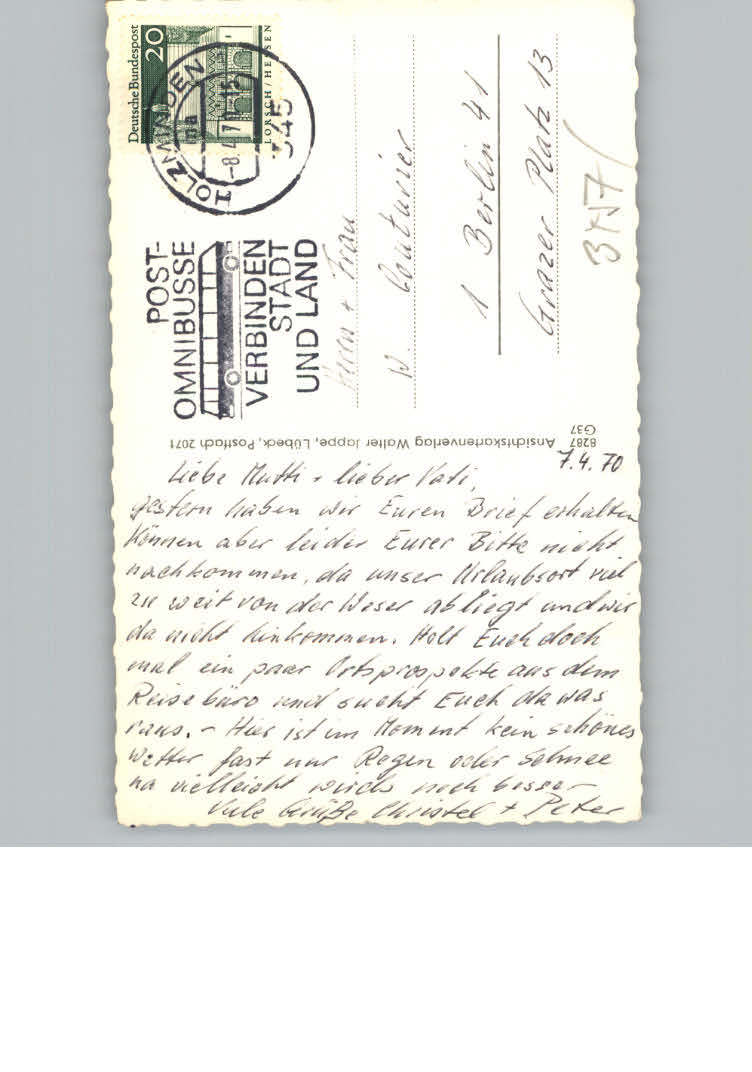 Deutsche Bundespost
20
LORSCH / HESSEN
HOLZMINDEN
-8.4.7
345
POST-
OMNIBUSSE
VERBINDEN
STADT
UND LAND
Herrn + Frau
W. Couturier
1 Berlin 41
Grazer Platz 13
3757/
8287 Ansichtskartenverlag Walter Jappe, Lübeck, Postfach 2071
G37
7.4.70
Liebe Mutti + lieber Vati,
gestern haben wir Euren Brief erhalten
können aber leider Eurer Bitte nicht
nachkommen, da unser Urlaubsort viel
zu weit von der Weser abliegt und wir
da nicht hinkommen. Holt Euch doch
mal ein paar Ortsprospekte aus dem
Reisebüro und sucht Euch da was
raus. - Hier ist im Moment kein schönes
Wetter fast nur Regen oder Schnee
na vielleicht wirds noch besser
Viele Grüße Christel + Peter